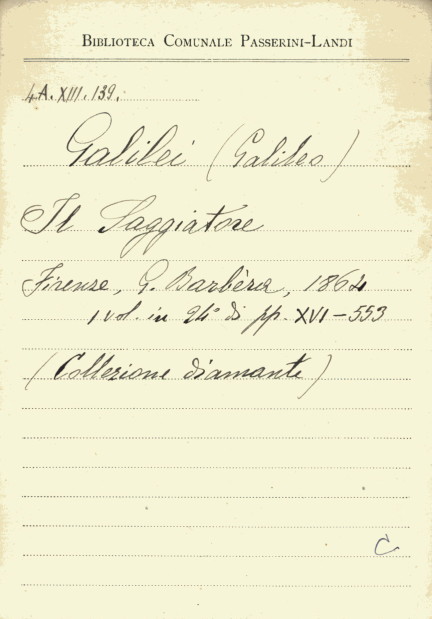 BIBLIOTECA COMUNALE PASSERINI-LANDI
4A.XIII.139.
Galilei (Galileo)
Il Saggiatore
Firenze, G. Barbèra, 1864
1 vol. in 24° di pp. XVI-553
(Collezione diamante)
C